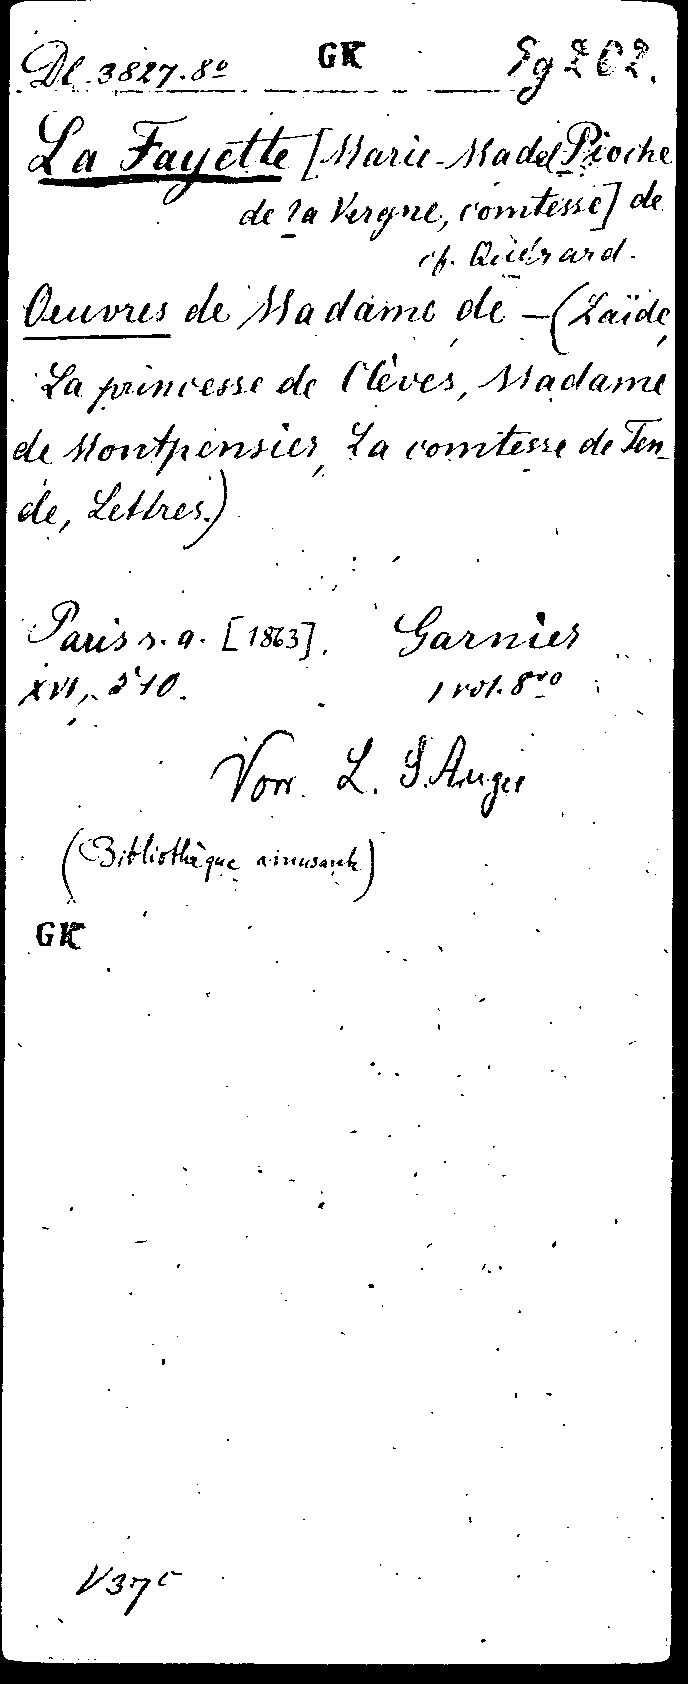 Dl 3827.8o GK Eg 202.
La Fayette [Marie-Madel Pioche
de la Vergne, comtesse] de
cf. Quérard.
Oeuvres de Madame de — (Zaïde,
La princesse de Clèves, Madame
de Montpensier, La comtesse de Ten-
de, Lettres.)
Paris s. a. [1863]. Garnier
XVI, 510. 1 vol. 8vo
Vorr. L. S. Auger
(Bibliothèque amusante)
GK
V37c